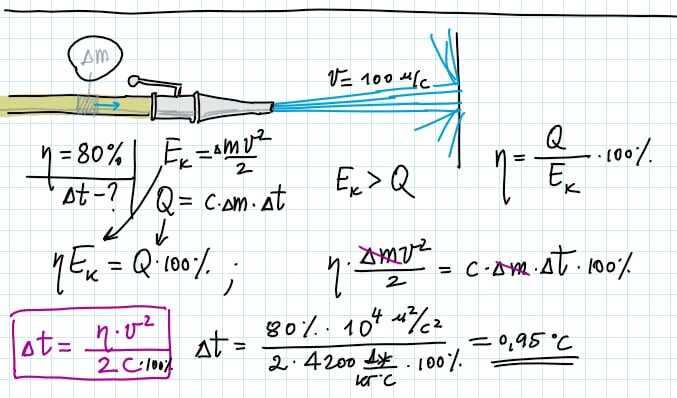 Δm
v = 100 м/с
η = 80%
Δt - ?
Eк = Δmv²/2
Q = c·Δm·Δt
Eк > Q
η = Q/Eк · 100%
ηEк = Q·100% ;
η · Δmv²/2 = c·Δm·Δt·100%
Δt = η·v²/2c·100%
Δt = 80%·10⁴ м²/с²/2·4200 Дж/кг°С·100% = 0,95 °C